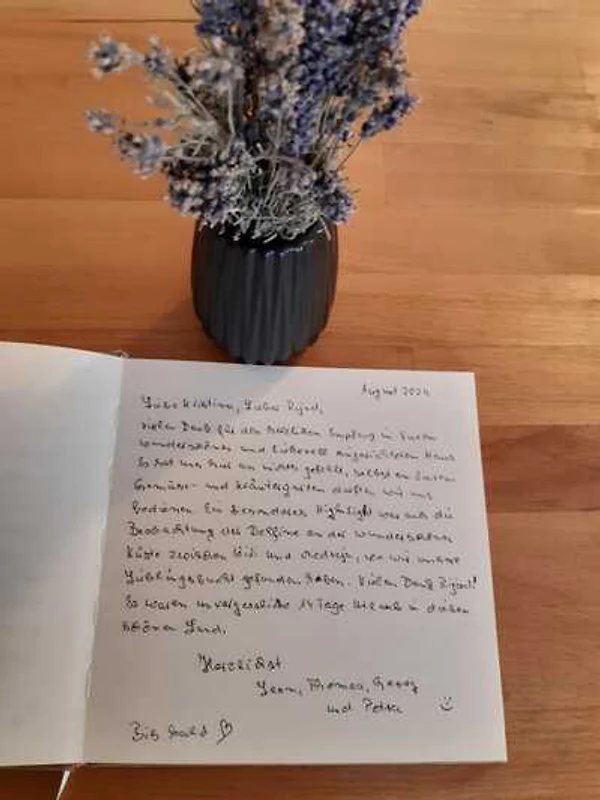 August 2024
Liebe Kristina, Lieber
vielen Dank für den herzlichen Empfang in Eurem
wunderschönen und liebevoll eingerichteten Haus
Es hat uns hier an nichts gefehlt, selbst an Eurem
Gemüse- und Kräutergarten durften wir uns
bedienen. Ein besonderes Highlight war auch die
Beobachtung der Delfine an der wunderschönen
Küste zwischen und wo wir unsere
Lieblingsbucht gefunden haben. Vielen Dank
Es waren unvergessliche 14 Tage Urlaub in diesem
schönen Land.
Herzlichst
Thomas, Georg
und Petra
Bis bald